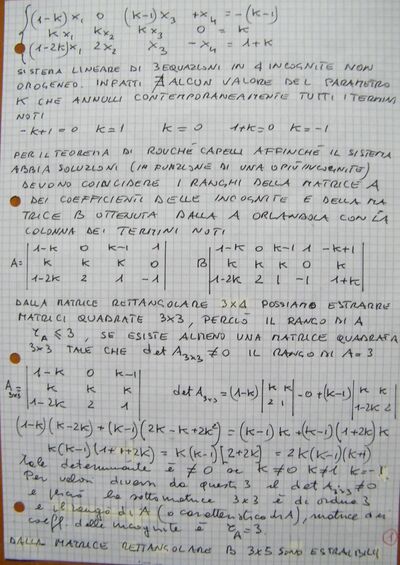 (1-K)x₁ 0 (K-1)x₃ +x₄ = -(K-1)
Kx₁ Kx₂ Kx₃ 0 = K
(1-2K)x₁ 2x₂ x₃ -x₄ = 1+K
SISTEMA LINEARE DI 3 EQUAZIONI IN 4 INCOGNITE NON
OROGENEO. INFATTI ∄ ALCUN VALORE DEL PARAMETRO
K CHE ANNULLI CONTEMPORANEAMENTE TUTTI I TERMINI
NOTI
-K+1=0 K=1 K=0 1+K=0 K=-1
PER IL TEOREMA DI ROUCHÉ CAPELLI AFFINCHÉ IL SISTEMA
ABBIA SOLUZIONI (IN FUNZIONE DI UNA O PIÙ INCOGNITE)
DEVONO COINCIDERE I RANGHI DELLA MATRICE A
DEI COEFFICIENTI DELLE INCOGNITE E DELLA MA
TRICE B OTTENUTA DALLA A ORLANDOLA CON LA
COLONNA DEI TERMINI NOTI
1-K 0 K-1 1 1-K 0 K-1 1 -K+1
A= K K K 0 B K K K 0 K
1-2K 2 1 -1 1-2K 2 1 -1 1+K
DALLA MATRICE RETTANGOLARE 3×4 POSSIAMO ESTRARRE
MATRICI QUADRATE 3×3, PERCIÒ IL RANGO DI A
r_A ≤ 3, SE ESISTE ALMENO UNA MATRICE QUADRATA
3×3 TALE CHE det A₃ₓ₃ ≠ 0 IL RANGO DI A = 3
1-K 0 K-1
A₃ₓ₃ K K K det A₃ₓ₃ = (1-K) |K K| -0 + (K-1) |K K|
1-2K 2 1 2 1 1-2K 2
(1-K)(K-2K) + (K-1)(2K-K+2K²) = (K-1)K + (K-1)(1+2K)K
K(K-1)(1+1+2K) = K(K-1)[2+2K] = 2K(K-1)(K+1)
Tale determinante è ≠ 0 se K≠0 K≠1 K≠-1
Per valori diversi da questi 3 il det A₃ₓ₃ ≠ 0
e perciò la sottomatrice 3×3 è di ordine 3
e il rango di A (o caratteristica di A), matrice dei
coeff. delle incognite è r_A = 3.
DALLA MATRICE RETTANGOLARE B 3×5 SONO ESTRAIBILI
1